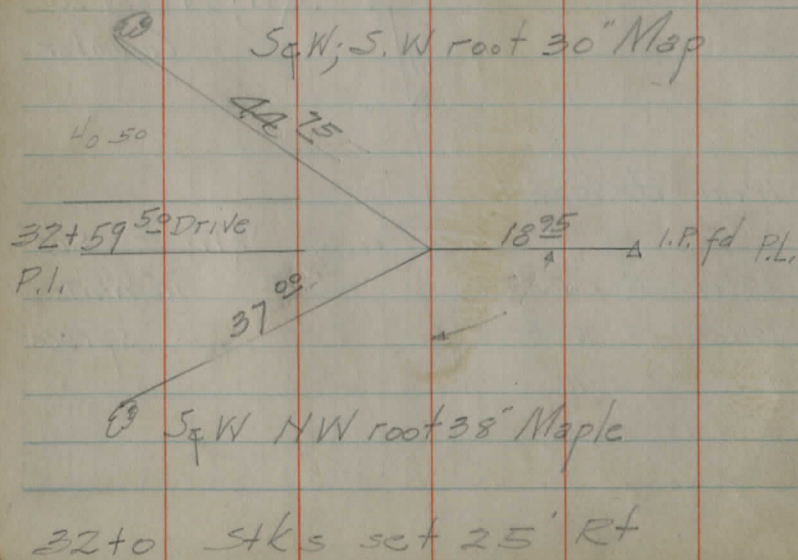 SqW; S.W root 30" Map
44 75
40 50
32+59 50 Drive
18 95 I.P. fd P.L.
P.I.
37 00
SqW NW root 38" Maple
32+0 Stks set 25' Rt